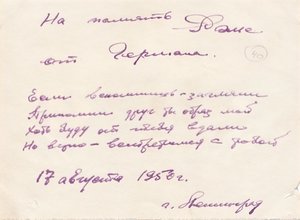 На память Рае
от Германа.
40
Если вспомнишь - загляни
Припомни друг ты образ мой
Хоть буду от тебя вдали
Но верно - встретимся с тобой
17 августа 1956 г.
г. Ленинград